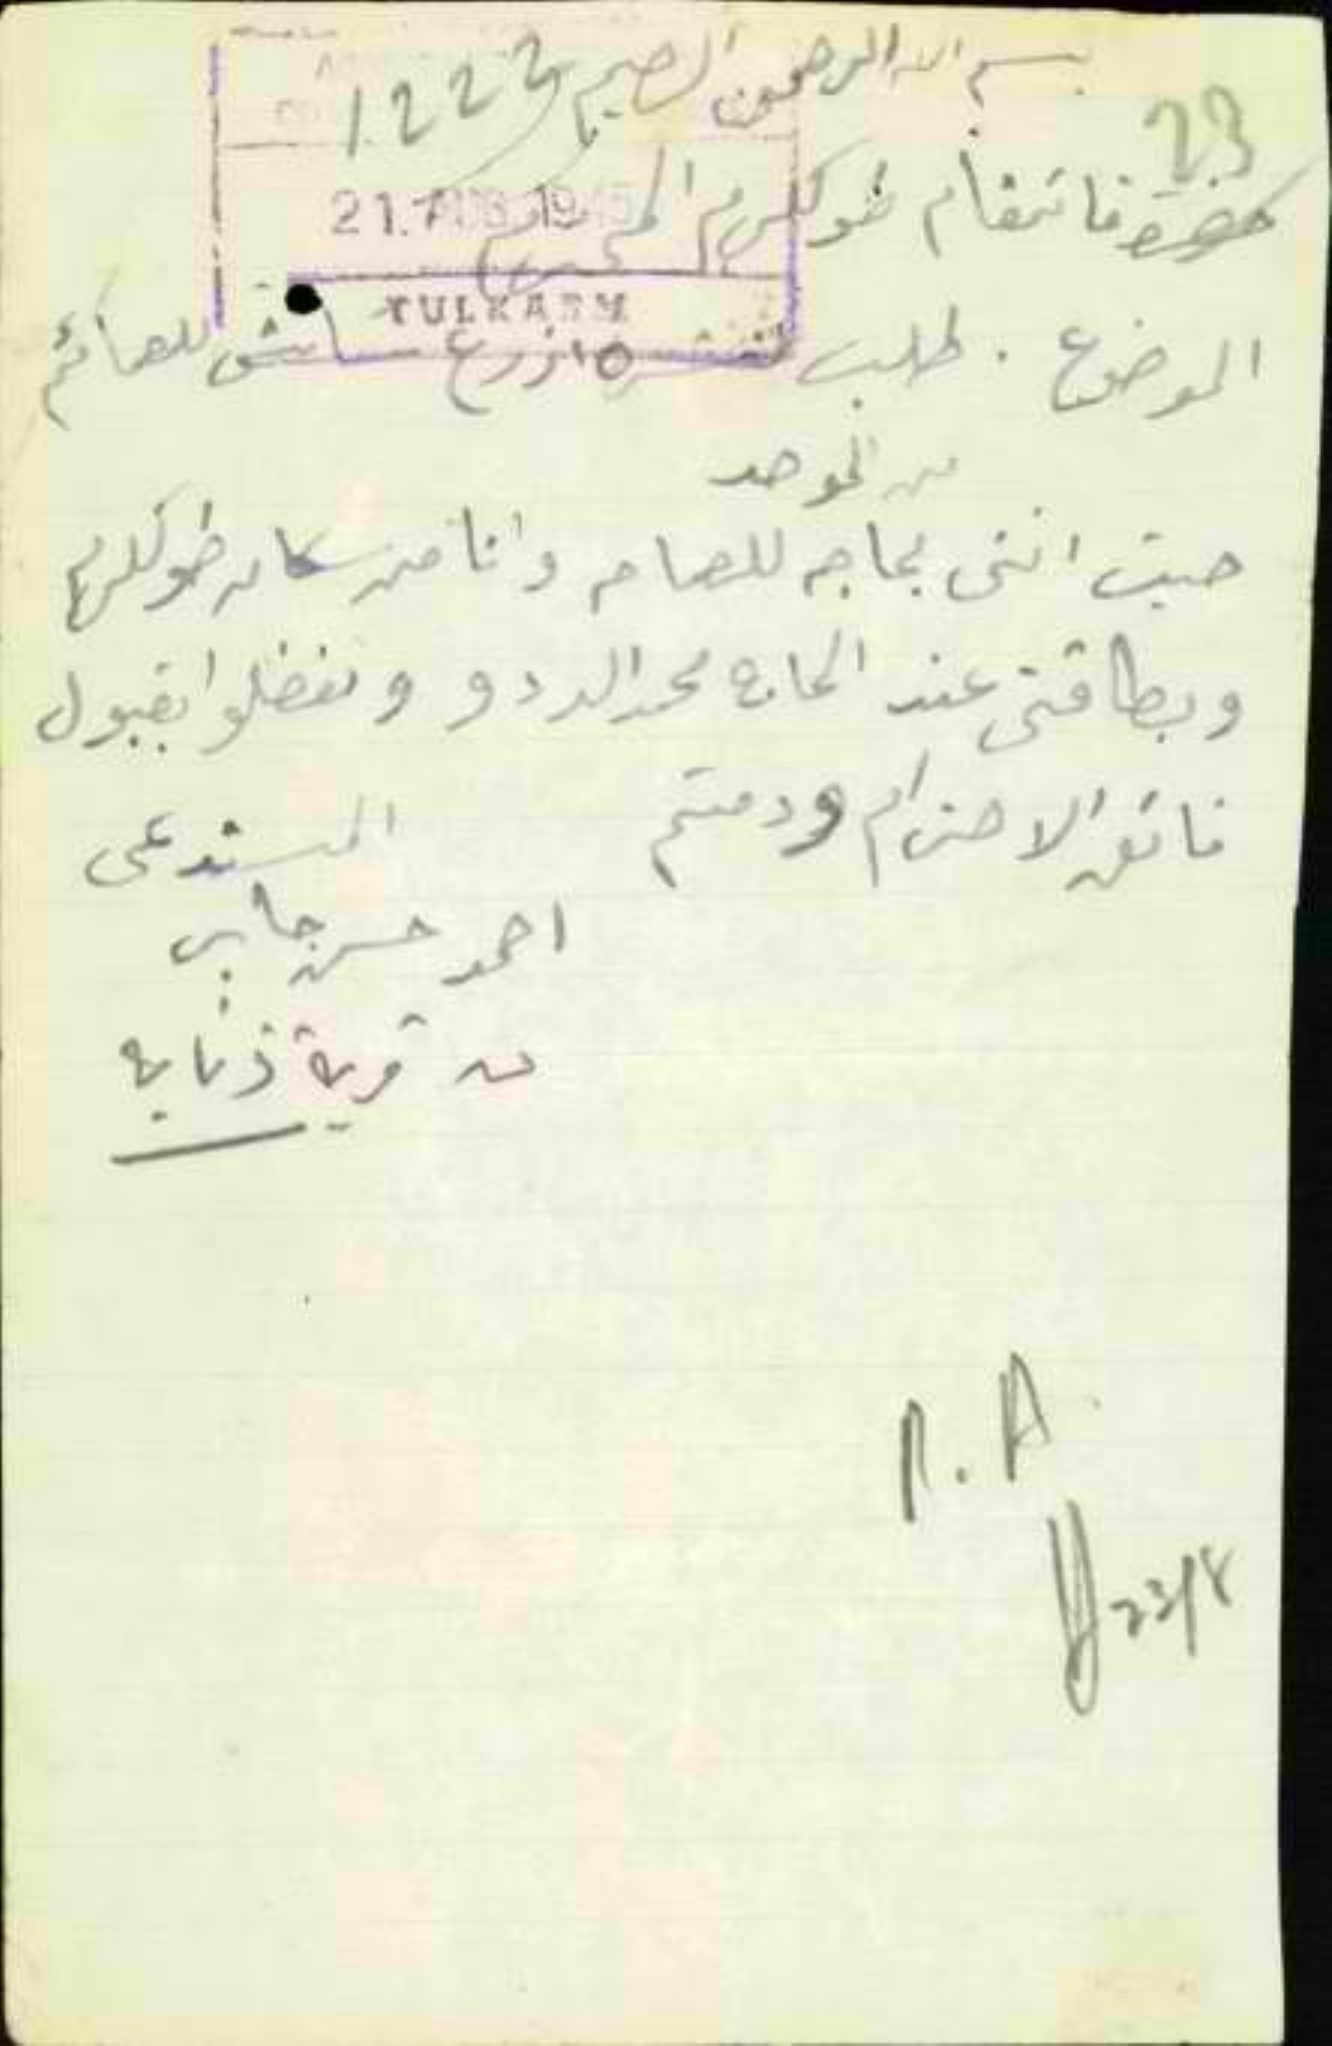 بسم الله الرحمن الرحيم
1222
23
حضرة قائمقام طولكرم المحترم
21. AUG 1945
TULKARM
الموضوع . طلب اذرع للصائم
من الموحد
حيث انني بحاجه للصام وانا من سكان طولكرم
وبطاقتي عند الحاج محمد الددو وتفضلوا بقبول
فائق الاحترام ودمتم
المستدعي
احمد حسن جابر
من قرية ذنابه
P.A
23/8